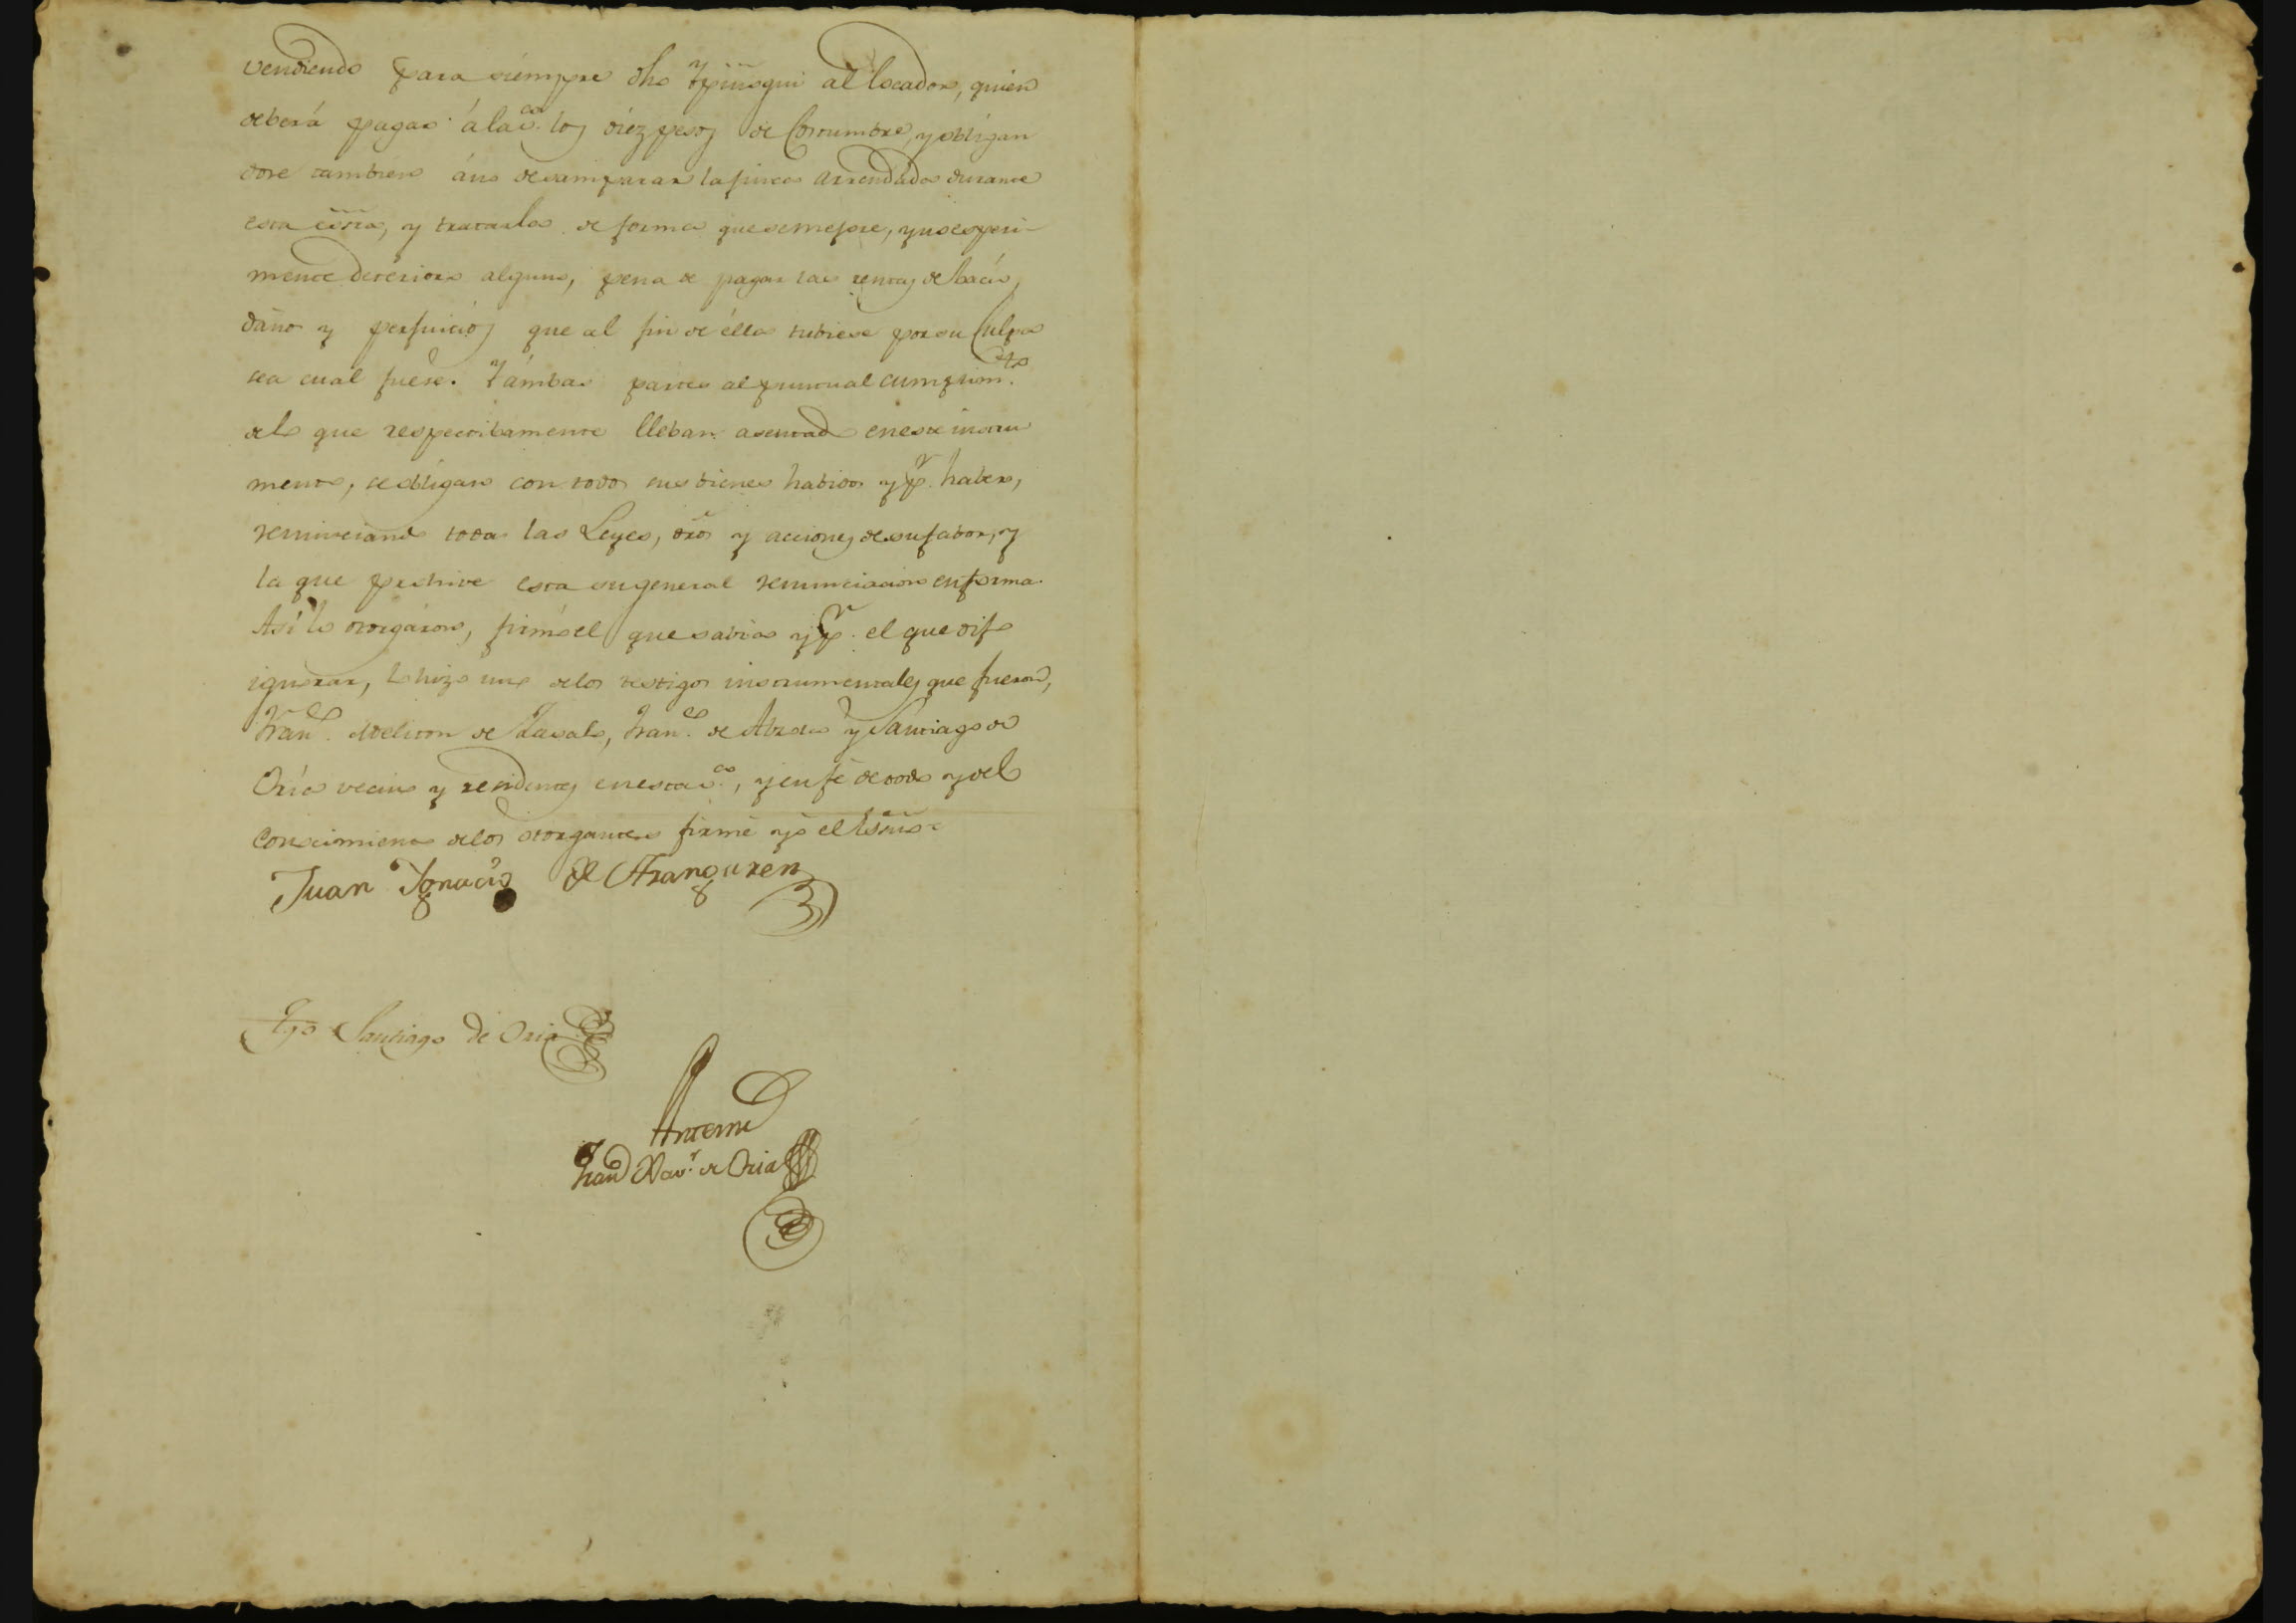 vendiendo para siempre dho Ypinsqui al locador, quien
deberá pagar á la cõ. los diez pesos de Costumbre, y obligan
dose tambien áno desamparar la finca arrendada durante
esta essra, y tratarla de forma que se mejore, y no esperi-
mente deterioro alguno, pena de pagar las rentas de bacío,
daños y perjuicios que al fin de élla tubiese por su Culpa
sea cual fuese. Y ámbas partes al puntual cumplim.to
delo que respectibamente lleban asentado en este instru
mento, se obligan con todos sus bienes habidos y p.r haber,
renunciando todas las Leyes, dros y acciones de su fabor, y
la que prohive esta su general renunciacion en forma.
Así lo otorgáron, firmó el que sabia y p.r el que dijo
ignorar, lo hizo uno delos testigos instrumentales que fueron,
Fran.co Meliton de Zavala, Fran.co de y Santiago de
Oria vecino y residentes en esta cõ., y en fé de todo y del
Conocimiento delos otorgantes firmé yo el Essno =
Juan Ygnacio de Aranguren
Tgo Santiago de Oria
Antemi
Fran.co Xav.r de Oria